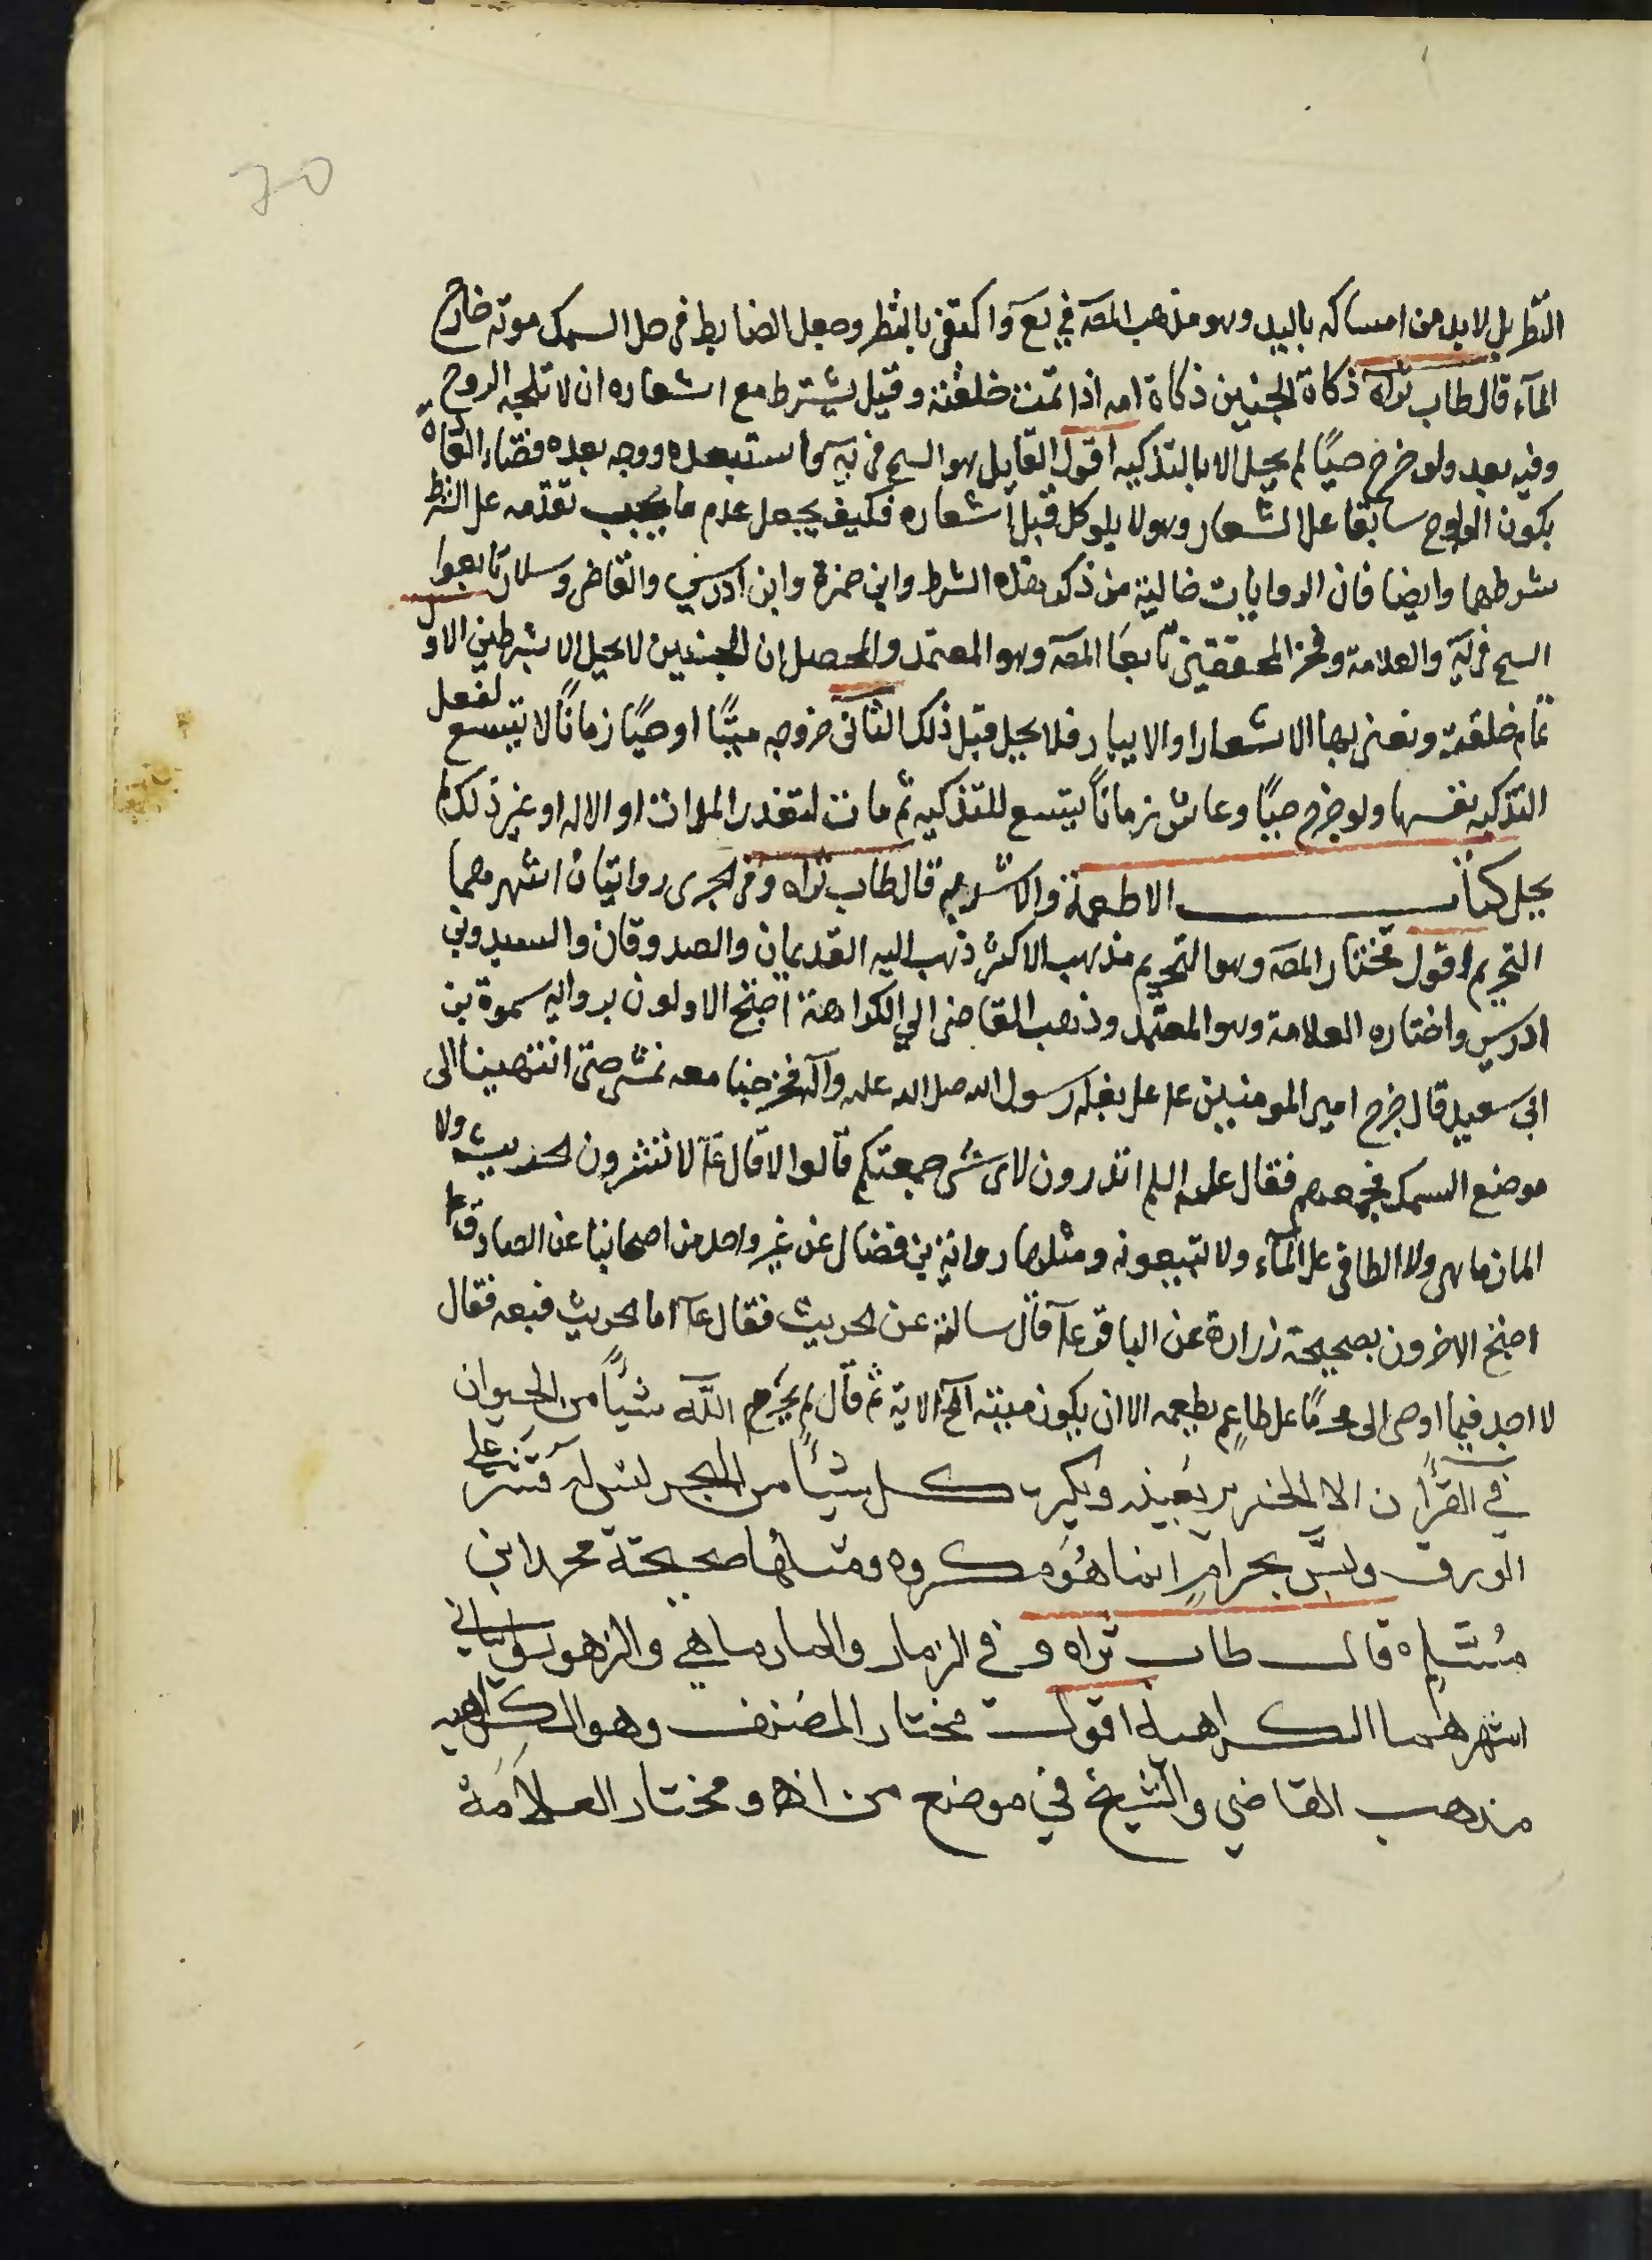 70
النظر بل لا بد من امساكه باليد وهو مذهب المصه في يع واكتفى بالنظر وجعل الضابط في حل السمك موته خارج
المآء قال طاب ثراه ذكاة الجنين ذكاة امه اذا تمت خلقته وقيل يشترط مع اشعاره ان لا تلجه الروح
وفيه بعد ولو خرج حيًا لم يحل الا بالتذكيه اقول القايل هو الشيخ في يه واستبعده ووجه بعده قضاء العادة
بكون الولوج سابقا على الشعار وهو لا يؤكل قبل اشعاره فكيف يجعل عدم ما يجب تقدمه على الشرط
شرطها وايضا فان الروايات خالية من ذكر هذه الشرط وابن حمزة وابن ادريس والقاضي وسلار تابعوا
الشيخ في يه والعلامة وفخر المحققين تابعا المصه وهو المعتمد والمحصل ان الجنين لا يحل الا بشرطين الاول
تمام خلقته ونعني بها الاشعار او الايبار فلا يحل قبل ذلك الثاني خروجه ميتًا او حيًا زمانًا لا يتسع لفعل
التذكيه نفسها ولو خرج حيًا وعاش زمانًا يتسع للتذكيه ثم مات لتعذر الالة او غير ذلك لم
يحل كتاب الاطعمة والاشربه قال طاب ثراه وفي الجرى روايتان اشهرهما
التحريم اقول مختار المصه وهو التحريم مذهب الاكثر ذهب اليه القديمان والصدوقان والسعيد وبن
ادريس واختاره العلامة وهو المعتمد وذهب القاضى الي الكراهة احتج الاولون برواية سمرة بن
ابي سعيد قال خرج امير المومنين عل على بغلة رسول الله صلى الله عليه وآله فخرجنا معه نمشى حتى انتهينا الى
موضع السمك فجمعهم فقال عليه السلم اتدرون لاى شى جمعتكم قالوا لا قال عآ لا تشترون الجريث ولا
المارماهى ولا الطافى على المآء ولا تبيعونه ومثلها رواية بن فضال عن غير واحد من اصحابنا عن الصادق عل
احتج الاخرون بصحيحة زرارة عن الباقر عآ قال سالته عن الجريث فقال عآ اما الجريث فنعه فقال
لا اجد فيما اوحى الى محرمًا على طاعم يطعمه الا ان يكون ميتة الخ الاية ثم قال لم يحرم الله شيأً من الحيوان
في القرأن الا الخنزير بعينه ويكره كل شيأ من البحر ليس له قشر مثل
الورق وليس بحرام انما هو مكروه ومثلها صحيحة محمد ابن
مسلم قال طاب ثراه و في الزمار والمارماهي والزهو روايتاني
اشهرهما الكراهية اقول مختار المصنف وهو الكراهيه
مذهب القاضي والشيخ في موضع من و مختار العلامة